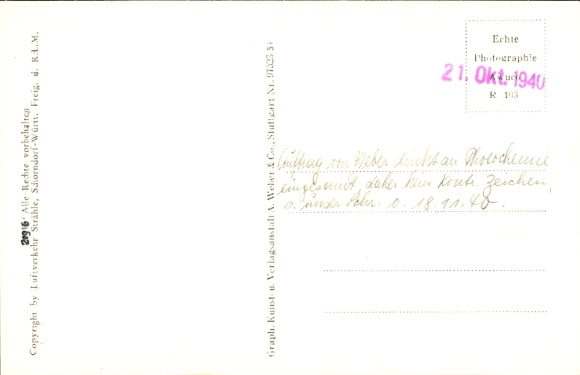 Echte
Photographie
R 163
21. Okt. 1940
Auftrag von Weber direkt an Photochemie
eingesandt, daher kein Kontr. Zeichen,
s. unser Schr. v. 18.11.40.
Graph. Kunst- u. Verlagsanstalt A. Weber & Co., Stuttgart Nr. 97523 5
Alle Rechte vorbehalten
Copyright by Luftverkehr Strähle, Schorndorf-Württ. Freig. d. R.L.M.